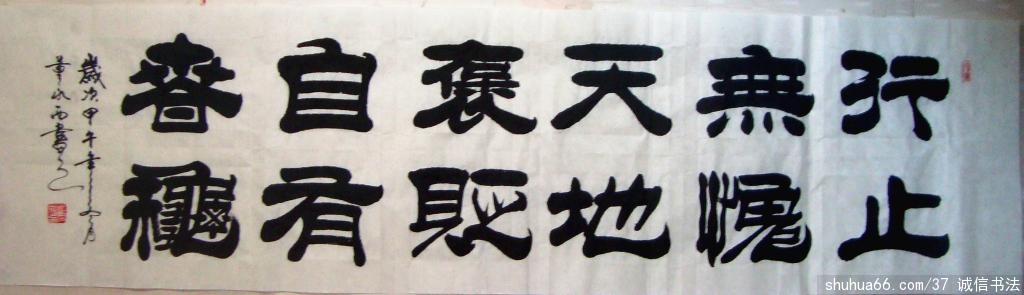 行止
無愧
天地
褒貶
自有
春龝
歲次甲午年月
書
shuhua66.com/37 诚信书法